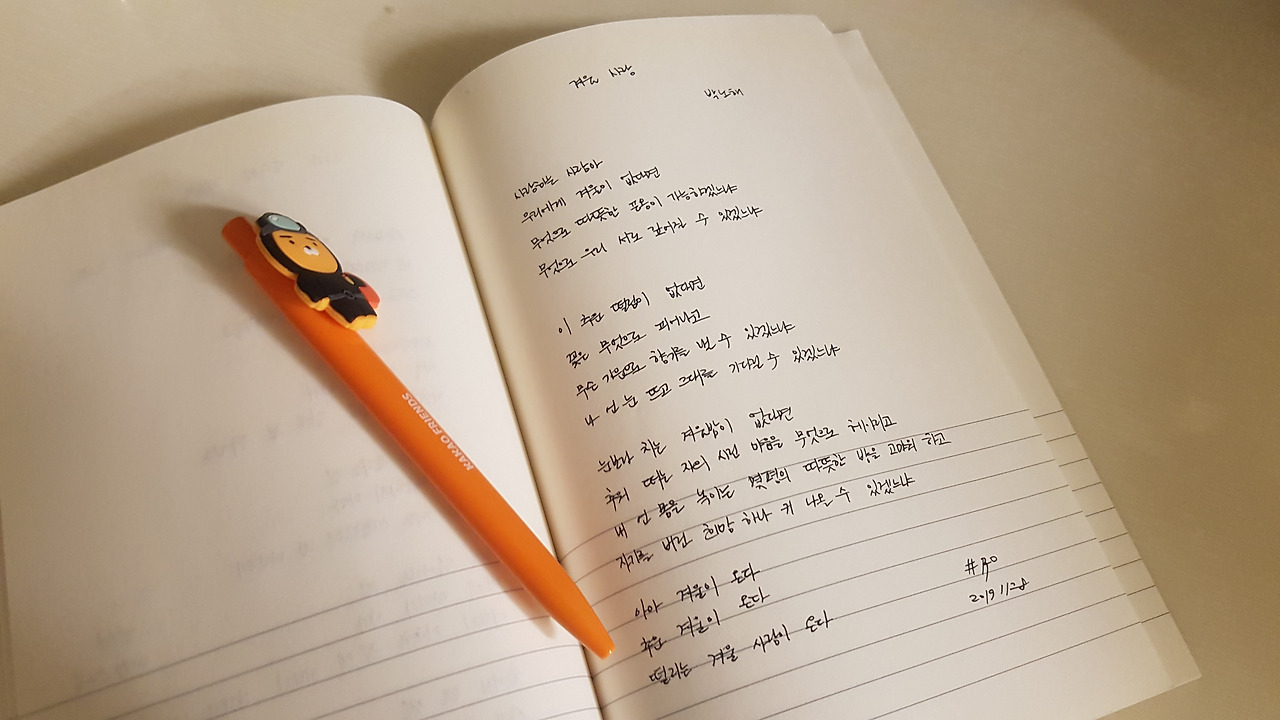 겨울 사랑
박노해
사랑하는 사람아
우리에게 겨울이 없다면
무엇으로 따뜻한 포옹이 가능하겠느냐
무엇으로 우리 서로 깊어질 수 있겠느냐
이 추운 떨림이 없다면
꽃은 무엇으로 피어나고
무슨 기운으로 향기를 낼 수 있겠느냐
나 언 눈 뜨고 그대를 기다릴 수 있겠느냐
눈보라 치는 겨울밤이 없다면
추워 떠는 자의 시린 마음을 무엇으로 헤아리고
내 언 몸을 녹이는 몇평의 따뜻한 방을 고마워 하고
자기를 버린 희망 하나 커 나올 수 있겠느냐
아아 겨울이 온다
추운 겨울이 온다
떨리는 겨울 사랑이 온다
2019 11 28
KAKAO FRIENDS